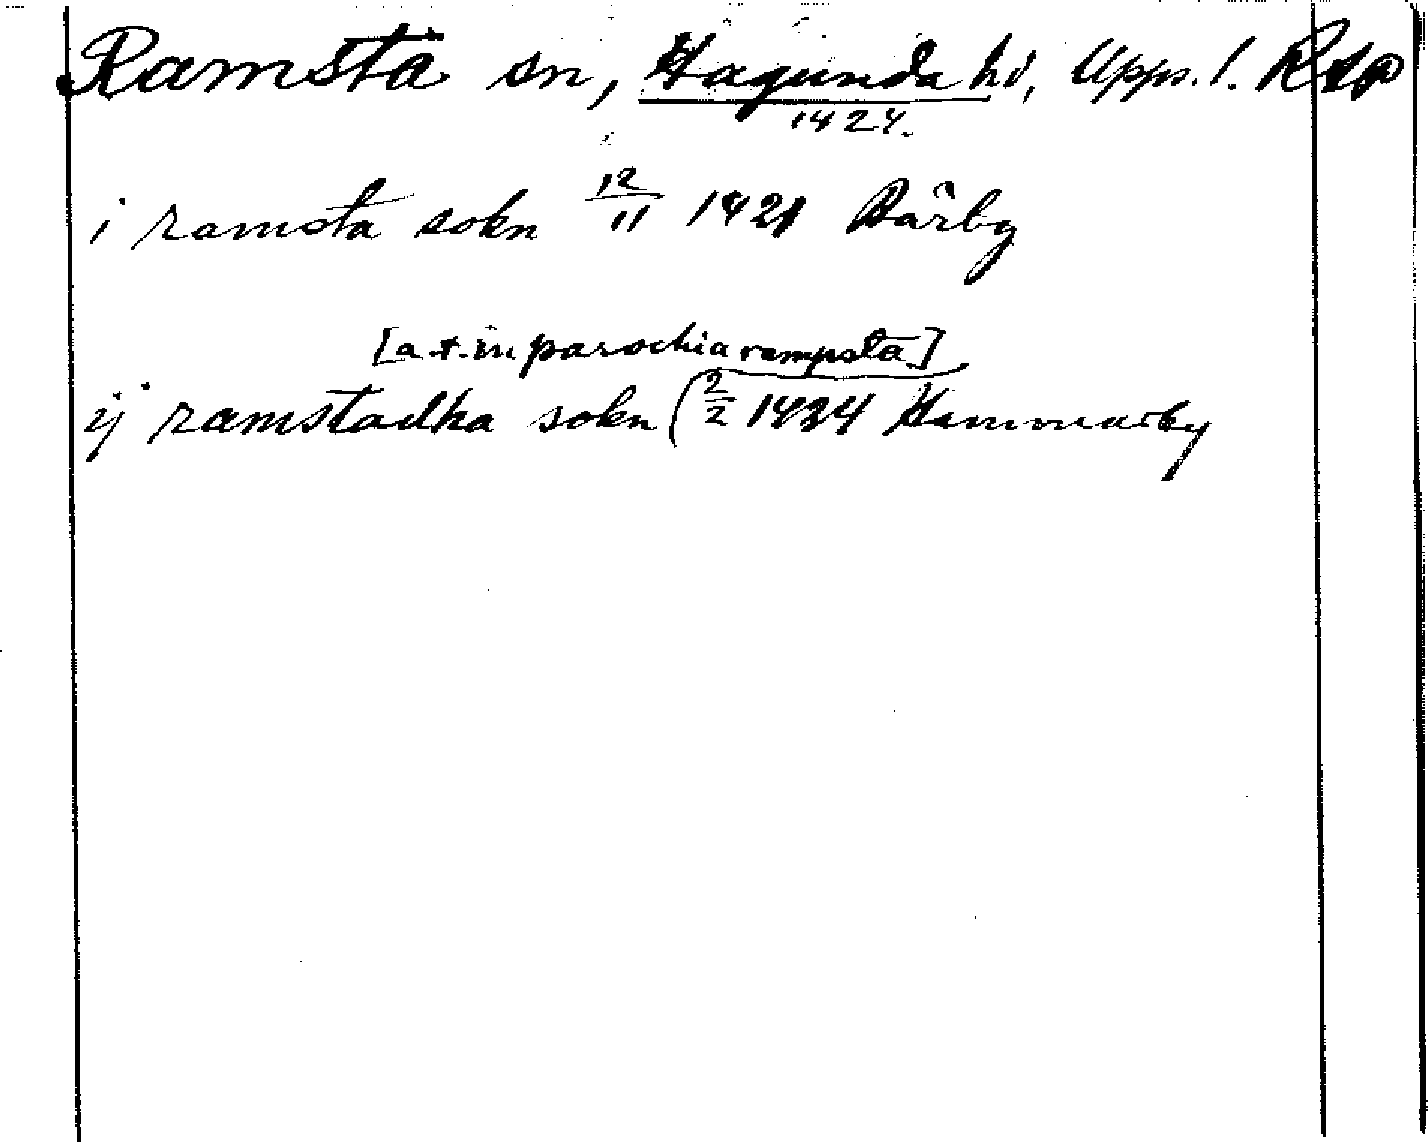 Ramsta sn, Hagunda hd, Upps. l. RAp
1424.
i ramsta sokn 12/11 1421 Bärby
[a.t. in parochia rampsta]
ij ramstadha sokn (2/2 1424 Hammarby